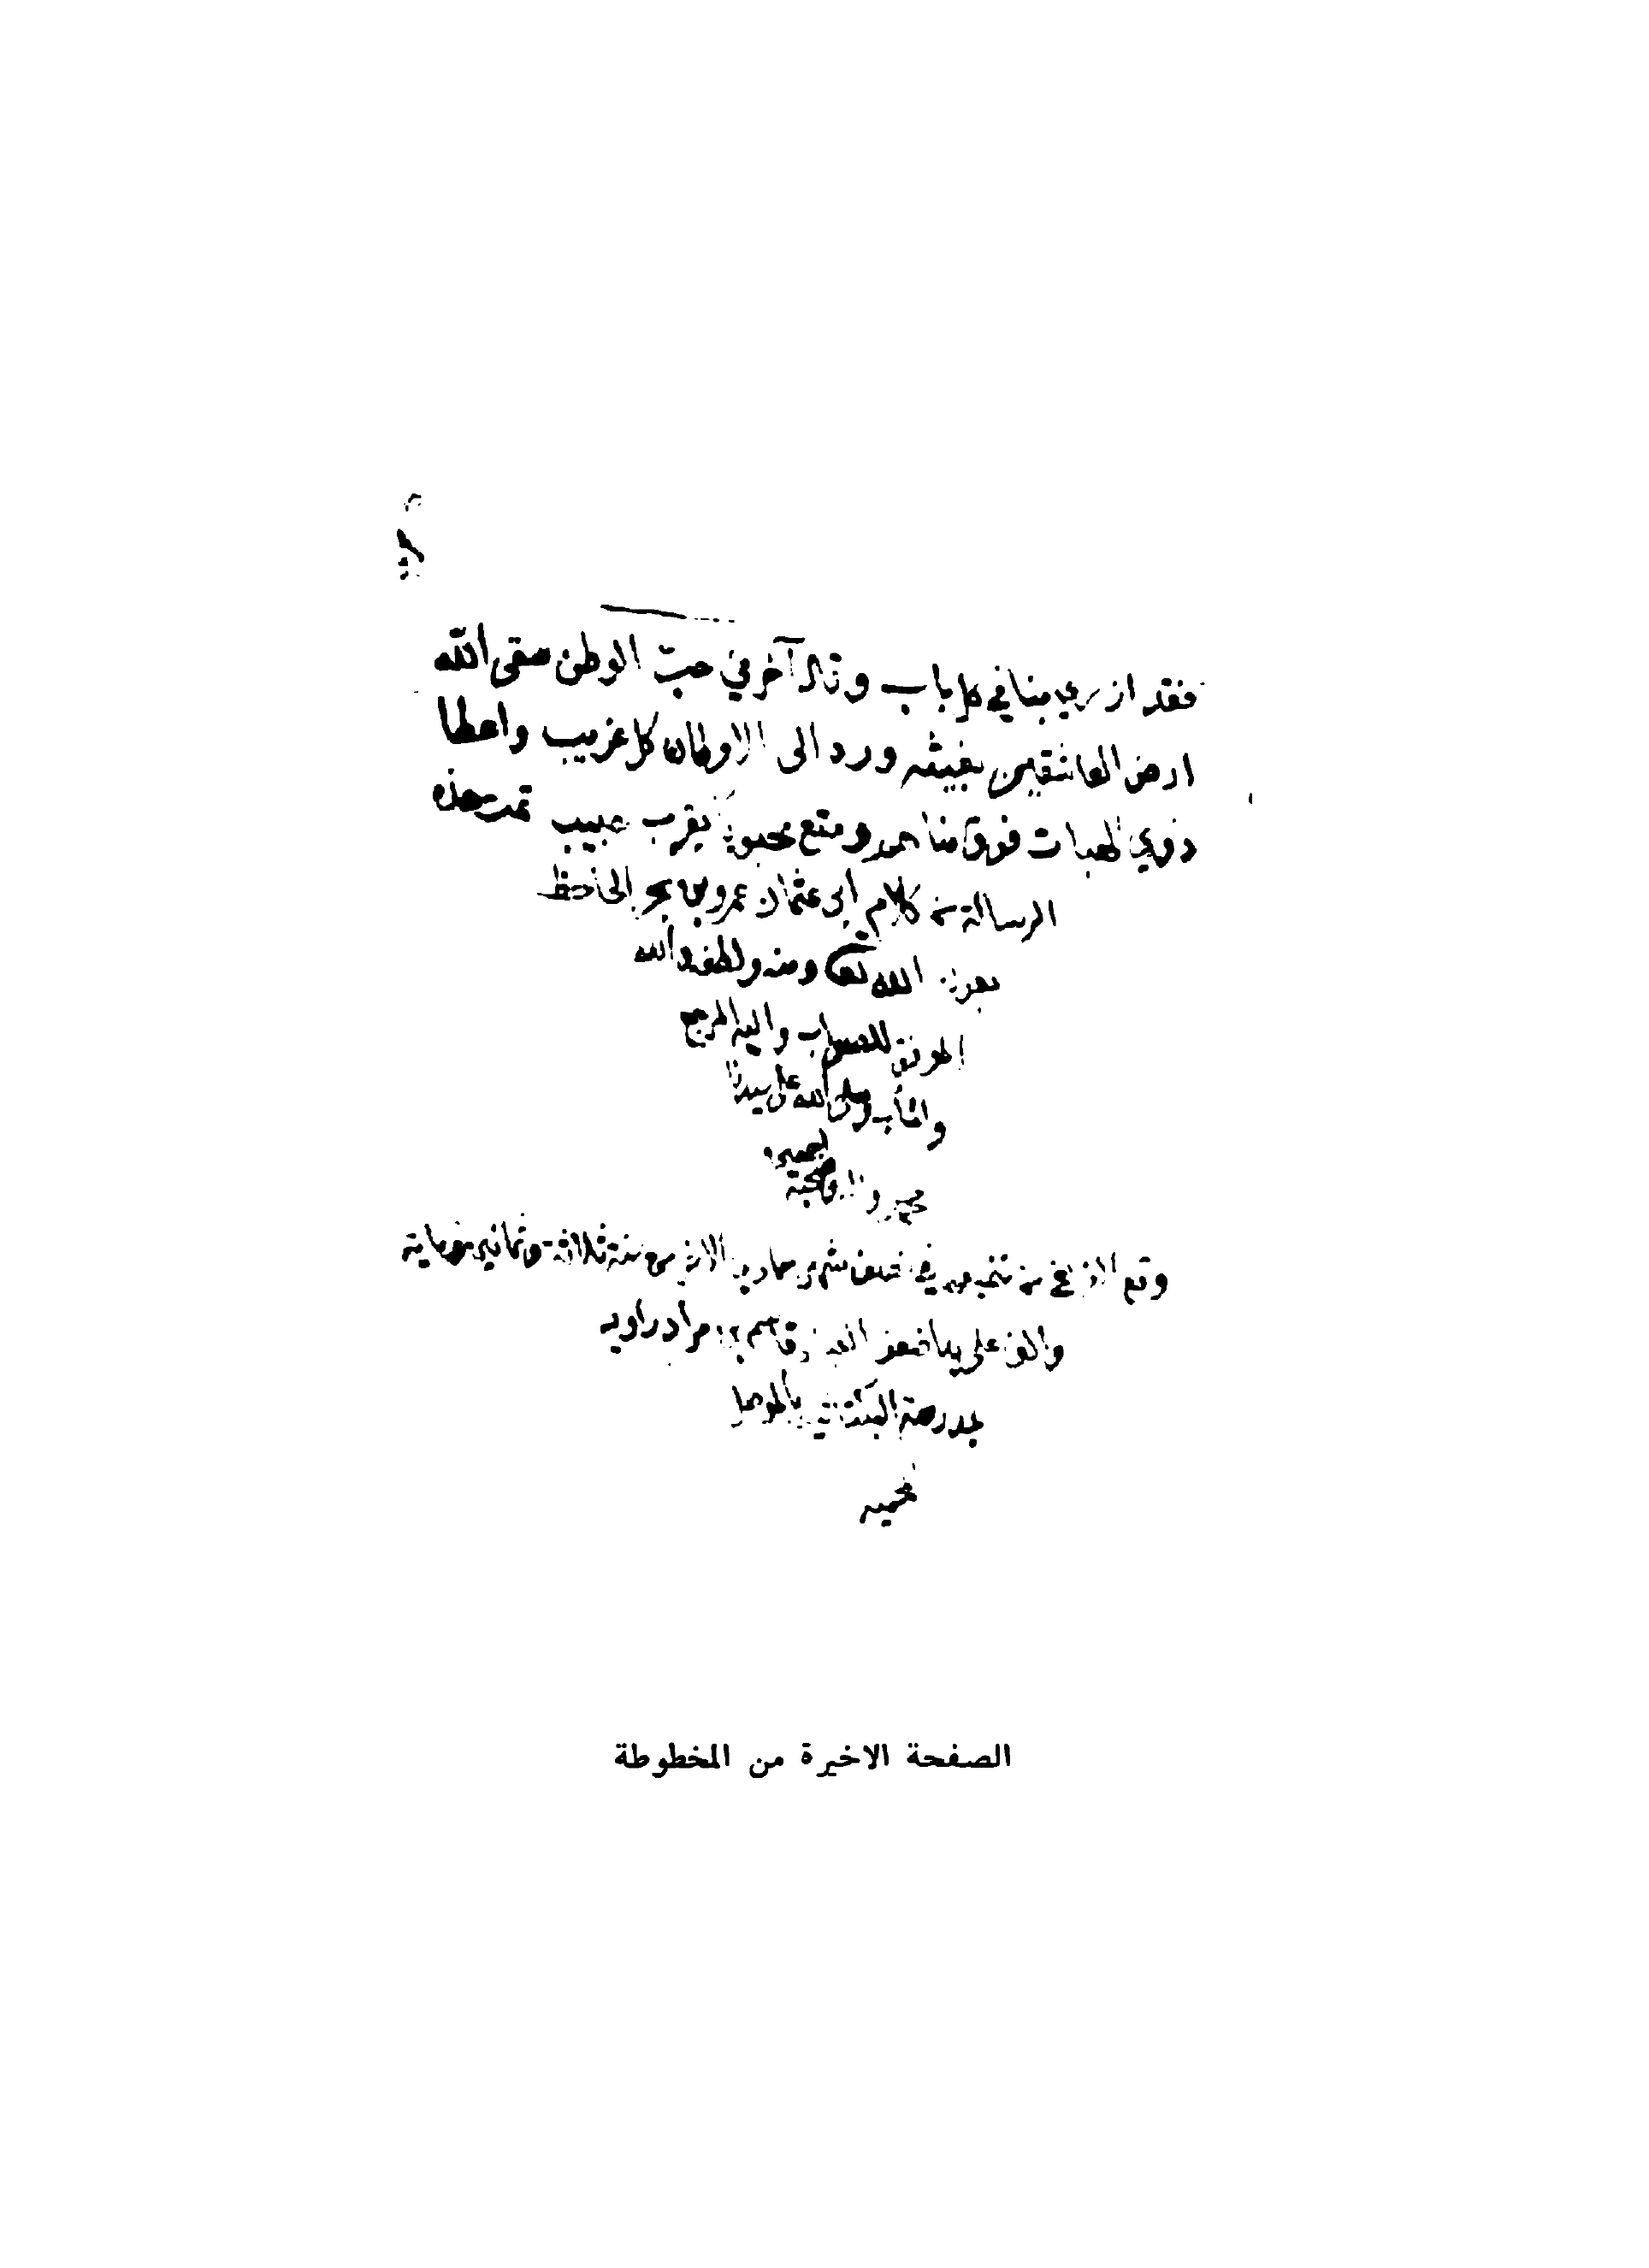 فقد ازري بنا في كل باب وقال آخر في حبّ الوطن سقى الله
ارض العاشقين بغيثه ورد الى الاوطان كل غريب واعطا
ذوي الهبات فوق مناهم ومتع محبوبا بقرب حبيب تمت هذه
الرسالة من كلام أبي عثمان عمرو بن بحر الجاحظ
بعون الله تعالى ومنه ولطفه والله
الموفق للصواب واليه المرجع
والمآب وصلى الله على سيدنا
محمد واله وصحبه
اجمعين
وقع الفراغ من في نصف شهر جمادى الاخر من سنة ثلاثة وثمانين ومايه
والف على يد اضعف قاسم بن مراد
بمدرسة بالموصل
الصفحة الاخيرة من المخطوطة